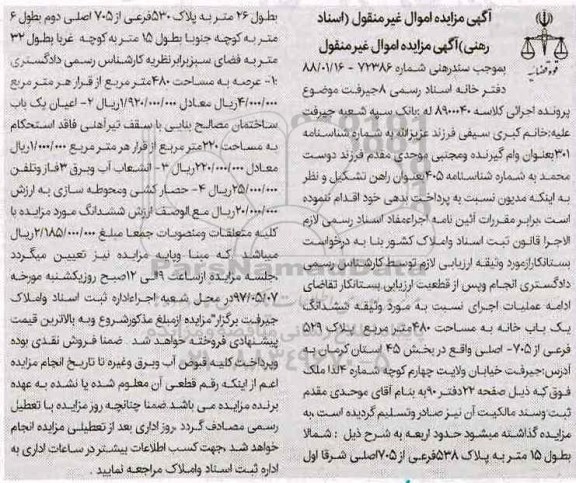 آگهی مزایده اموال غیر منقول (اسناد
رهنی)آگهی مزایده اموال غیر منقول
بموجب سندرهنی شماره ۷۲۳۸۶ - ۸۸/۰۱/۱۶
دفتر خانه اسناد رسمی ۸جیرفت موضوع
پرونده اجرائی کلاسه ۸۹۰۰۰۴۰ له بانک سپه شعبه جیرفت
علیه:خانم کبری سیفی فرزند عزیزالله به شماره شناسنامه
۳۰۱بعنوان وام گیرنده ومجتبی موحدی مقدم فرزند دوست
محمد به شماره شناسنامه ۴۰۵بعنوان راهن تشکیل و نظر
به اینکه مدیون نسبت به پرداخت بدهی خود اقدام ننموده
است ،برابر مقررات آئین نامه اجراءمفاد اسناد رسمی لازم
الاجرا قانون ثبت اسناد واملاک کشور بنا به درخواست
بستانکارازمورد وثیقه ارزیابی لازم توسط کارشناس رسمی
دادگستری انجام وپس از قطعیت ارزیابی بستانکار تقاضای
ادامه عملیات اجرای نسبت به مورد وثیقه ششدانگ
یک باب خانه به مساحت ۴۸۰متر مربع پلاک ۵۲۹
فرعی از ۷۰۵- اصلی واقع در بخش ۴۵ استان کرمان به
آدرس:جیرفت خیابان ولایت چهارم کوچه شماره ۴لذا ملک
فوق که ذیل صفحه ۲۲دفتر ۹۰به بنام آقای موحدی مقدم
ثبت وسند مالکیت آن نیز صادر وتسلیم گردیده است ،به
مزایده گذاشته میشود حدود اربعه به شرح ذیل : شمالا
بطول ۱۵ متر به پلاک ۵۳۸فرعی از ۷۰۵اصلی شرقا اول
بطول ۲۶ متر به پلاک ۵۳۰فرعی از ۷۰۵ اصلی دوم بطول ۶
متر به کوچه جنوبا بطول ۱۵ متر به کوچه غربا بطول ۳۲
متر به فضای سبز برابر نظریه کارشناس رسمی دادگستری
:۱- عرصه به مساحت ۴۸۰متر مربع از قرار هر متر مربع
۴/۰۰۰/۰۰۰ریال معادل ۱/۹۲۰/۰۰۰/۰۰۰ریال ۲- اعیان یک باب
ساختمان مصالح بنایی با سقف تیرآهنی فاقد استحکام
به مساحت ۲۲۰متر مربع از قرار هر متر مربع ۱/۰۰۰/۰۰۰ریال
معادل ۲۲۰/۰۰۰/۰۰۰ریال ۳- انشعاب آب وبرق ۳فاز وتلفن
۲۵/۰۰۰/۰۰۰ریال ۴- حصار کشی ومحوطه سازی به ارزش
۲۰/۰۰۰/۰۰۰ریال مع الوصف ارزش ششدانگ مورد مزایده با
کلیه متعلقات ومنصوبات جمعا مبلغ ۲/۱۸۵/۰۰۰/۰۰۰ریال
میباشد که مبنا وپایه مزایده نیز تعیین میگردد
جلسه مزایده از ساعت ۹الی ۱۲صبح روز یکشنبه مورخه
۹۷/۰۵/۰۷در محل شعبه اجراءاداره ثبت اسناد واملاک
جیرفت برگزار"مزایده ازمبلغ مذکور شروع وبه بالاترین قیمت
پیشنهادی فروخته خواهد شد . ضمنا فروش نقدی بوده
وپرداخت کلیه قبوض آب وبرق وغیره تا تاریخ انجام مزایده
اعم از اینکه رقم قطعی آن معلوم شده یا نشده به عهده
برنده مزایده می باشد.ضمنا چنانچه روز مزایده با تعطیل
رسمی مصادف گردد ،روز اداری بعد از تعطیلی مزایده انجام
خواهد شد ،جهت کسب اطلاعات بیشتر در ساعات اداری به
اداره ثبت اسناد واملاک مراجعه نمایید .